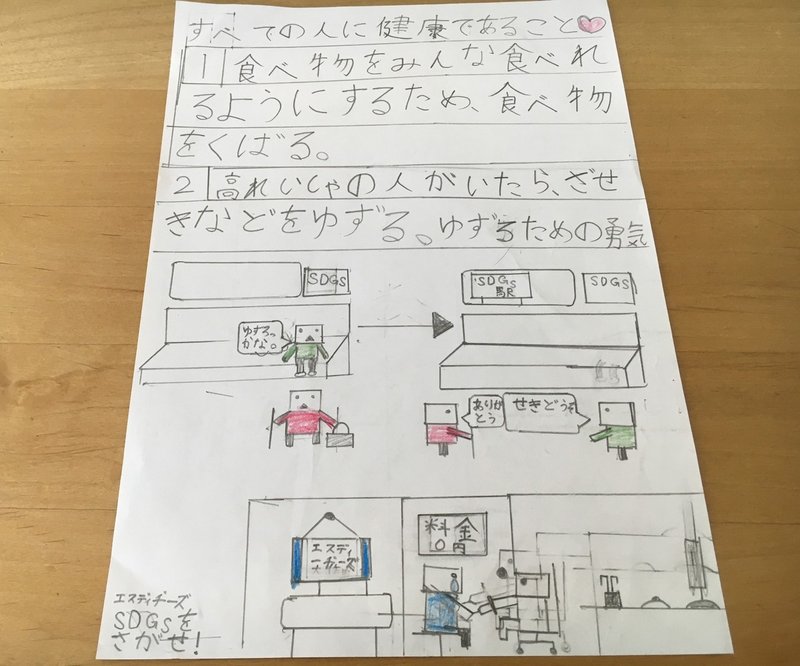 すべての人に健康であること
1 食べ物をみんな食べれ
るようにするため、食べ物
をくばる。
2 高れいしゃの人がいたら、ざせ
きなどをゆずる。ゆずるための勇気
SDGs
ゆずるっ
かな。
SDGs
駅
SDGs
ありが
とう
せきどうぞ
エスディ
ージーズ
料金
0円
エスディヂーズ
SDGsを
さがせ!